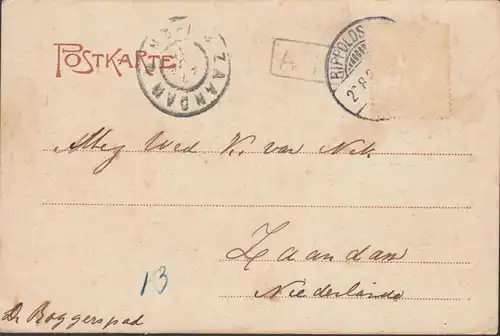 POSTKARTE
ZAANDAM
RIPPOLDS
Mej Wed K. van Nek
Zaandam
Niederlande
13
Dr Boggerspad